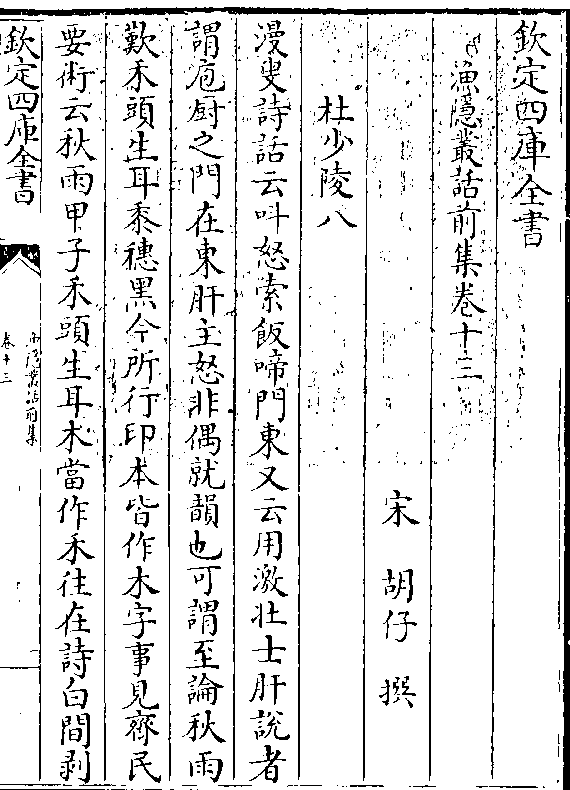 欽定四庫全書
漁隱叢話前集卷十三
宋 胡仔 撰
杜少陵八
漫叟詩話云叫怒索飯啼門東又云用激壯士肝說者
謂庖厨之門在東肝主怒非偶就韻也可謂至論秋雨
歎禾頭生耳黍穗黑今所行印本皆作木字事見齊民
要術云秋雨甲子禾頭生耳木當作禾往在詩白間剥
欽定四庫全書
漁隱叢話前集
卷十三